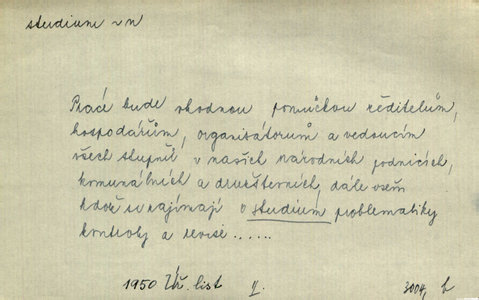 studium n n
Prací bude vhodnou pomůckou ředitelům,
hospodářům, organisátorům a vedoucím
všech stupňů v našich národních podnicích,
komunálních a družsterních, dále všem
kdož se zajímají o studium problematiky
kontroly a revise......
1950 Zář. list II. 3004, b